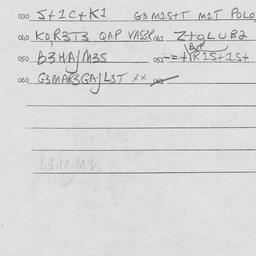 030 S+1C+K1 G3 M1S+T M1T POLO,
040 KO,R3T3 QAP VASSR 043 Z+9LUB2
050 B3HAJM3S 053 -=+YR1S+1S+
But
060 G3MAR3GAJL3T xx
B3HAJM3S